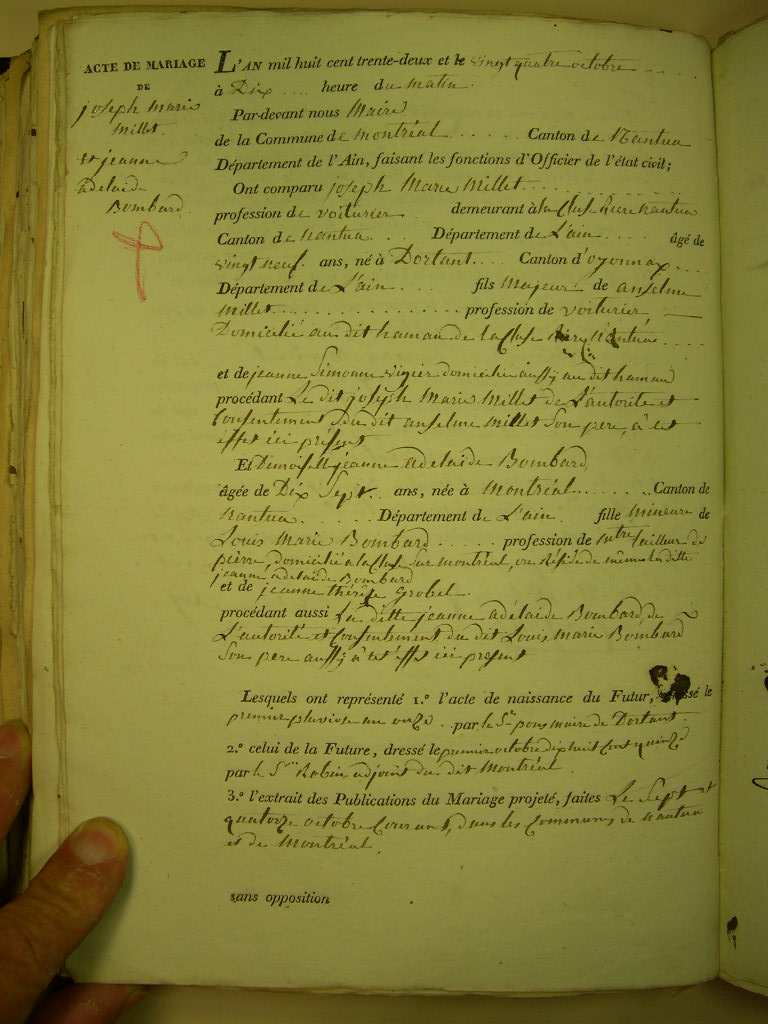 ACTE DE MARIAGE
DE
joseph marie
millet.
et jeanne
adelaide
Bombard
L'AN mil huit cent trente-deux et le vingt quatre octobre
à Dix .... heure du matin
Par-devant nous Maire
de la Commune de montréal ...... Canton de Nantua
Département de l'Ain, faisant les fonctions d'Officier de l'état civil;
Ont comparu joseph Marie Millet
profession de voiturier demeurant à la Cluse Rière nantua
Canton de nantua... Département de L'ain .... âgé de
vingt neuf ans, né à Dortant.... Canton d'oyonnax...
Département de L'ain .... fils Majeur de anselme
Millet .............. profession de voiturier
Domicilié au dit hamau de la Cluse Nantua ....
et de jeanne Simonne vigier domicilie aussy au dit hamau
procédant Le dit joseph Marie Millet de L'autorité et
Consentement du dit anselme Millet Son pere, à cet
effet ici présent
Et Demoiselle jeanne adelaide Bombard
âgée de Dix Sept.. ans, née à Montréal....... Canton de
nantua ..... Département de L'ain. fille mineure de
Louis Marie Bombard ..... profession de tailleur de
pierre, domicilié a la Cluse Sur montréal, ou Réside de même la ditte
jeanne adelaide Bombard
et de jeanne thérèse Grobel
procédant aussi La ditte jeanne adélaide Bombard, de
L'autorité et Consentement du dit Louis Marie Bombard
Son pere aussy à cet effet ici présent
Lesquels ont représenté 1.º l'acte de naissance du Futur, dressé le
premier pluviose an onze . par le Sr. pons maire de Dortant.
2.º celui de la Future, dressé le premier octobre dix huit Cent quinze
par le Sr Robin adjoint du dit Montréal.
3.º l'extrait des Publications du Mariage projeté, faites Le Sept et
quatorze octobre Courant, dans les Communes de nantua
et de Montréal.
sans opposition